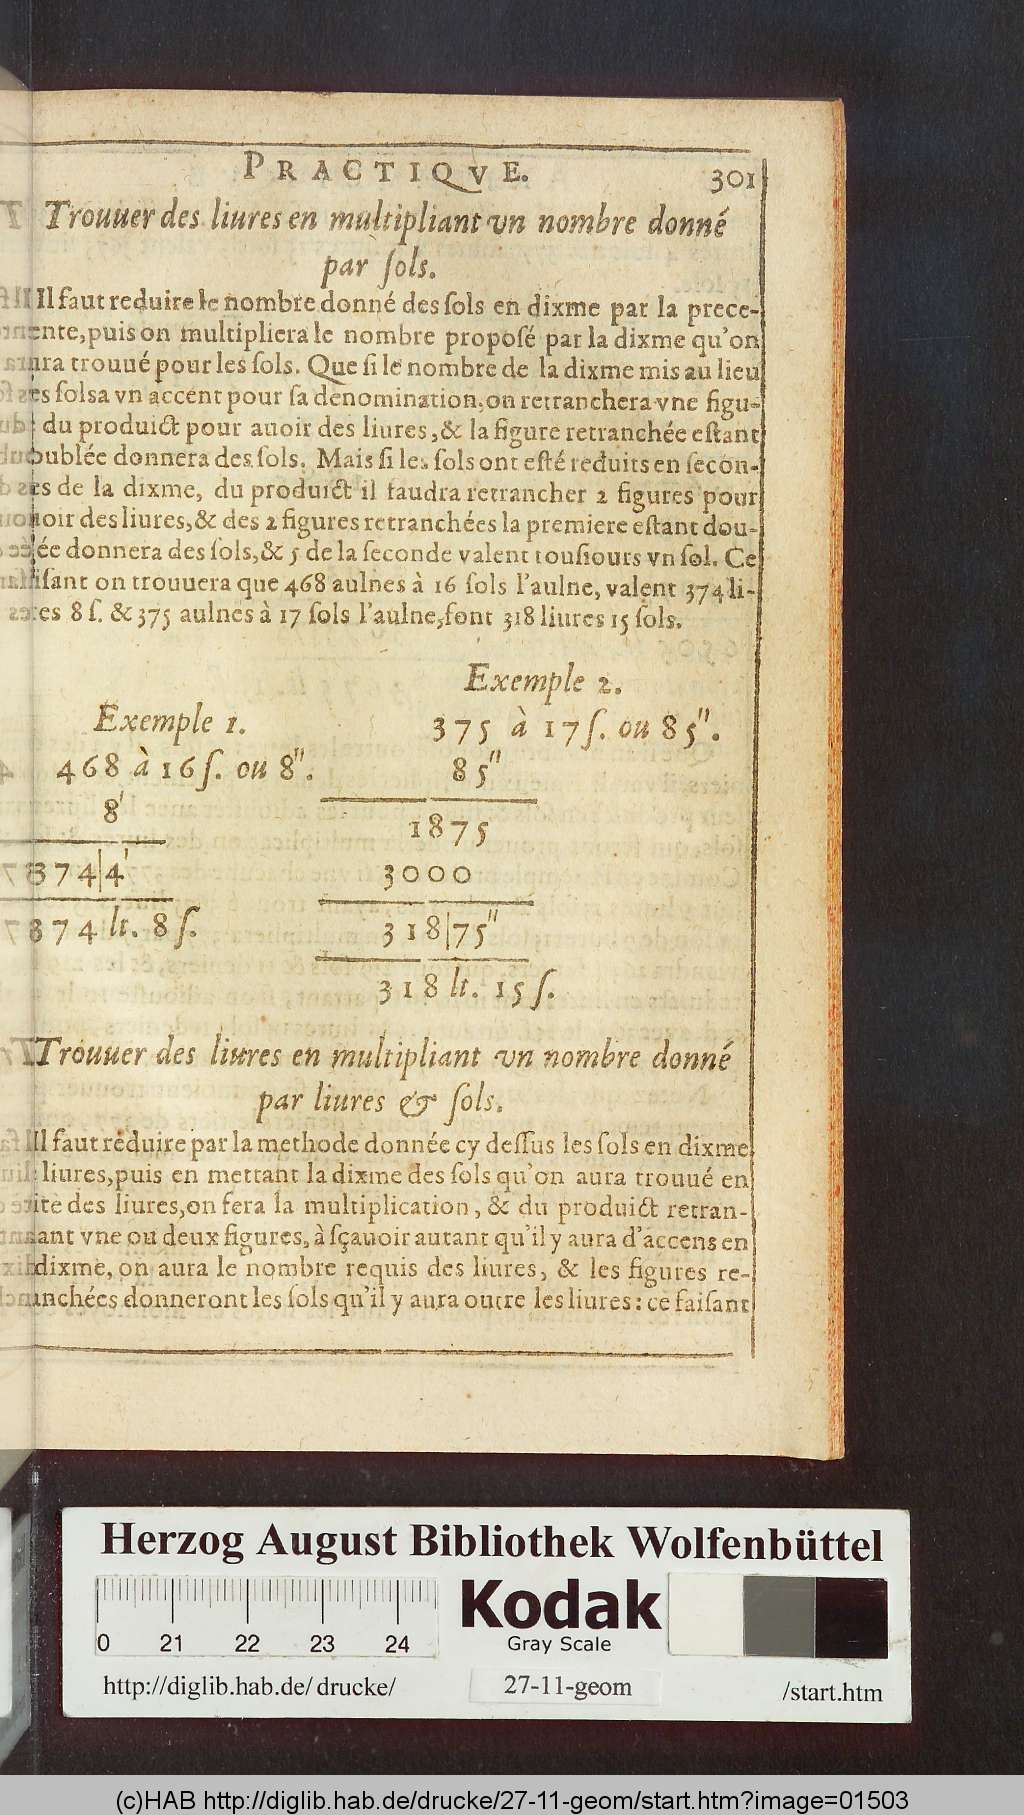 PRACTIQVE. 301
Trouuer des liures en multipliant vn nombre donné
par ſols.
Il faut reduire le nombre donné des ſols en dixme par la prece-
ente, puis on multipliera le nombre propoſé par la dixme qu'on
ura trouué pour les ſols. Que ſi le nombre de la dixme mis au lieu
es ſols a vn accent pour ſa denomination, on retranchera vne figu-
du produict pour auoir des liures, & la figure retranchée eſtant
oublée donnera des ſols. Mais ſi les ſols ont eſté reduits en ſecon-
es de la dixme, du produict il faudra retrancher 2 figures pour
oir des liures, & des 2 figures retranchées la premiere eſtant dou-
ée donnera des ſols, & 5 de la ſeconde valent touſiours vn ſol. Ce
iſant on trouuera que 468 aulnes à 16 ſols l'aulne, valent 374 li-
es 8 ſ. & 375 aulnes à 17 ſols l'aulne, font 318 liures 15 ſols.
Exemple 1.
468 à 16 ſ. ou 8".
8'
374|4'
374 lt. 8 ſ.
Exemple 2.
375 à 17 ſ. ou 85".
85"
1875
3000
318|75"
318 lt. 15 ſ.
Trouuer des liures en multipliant vn nombre donné
par liures & ſols.
Il faut réduire par la methode donnée cy deſſus les ſols en dixme
liures, puis en mettant la dixme des ſols qu'on aura trouué en
ite des liures, on fera la multiplication, & du produict retran-
ant vne ou deux figures, à ſçauoir autant qu'il y aura d'accens en
dixme, on aura le nombre requis des liures, & les figures re-
anchées donneront les ſols qu'il y aura outre les liures : ce faiſant
Herzog August Bibliothek Wolfenbüttel
0 21 22 23 24
Kodak
Gray Scale
http://diglib.hab.de/ drucke/ 27-11-geom /start.htm
(c)HAB http://diglib.hab.de/drucke/27-11-geom/start.htm?image=01503